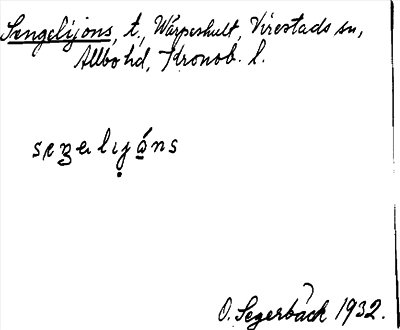 Sengelijons, t., Wårpeshult, Virestads sn,
Allbo hd, Kronob. l.
O. Segerbäck 1932.